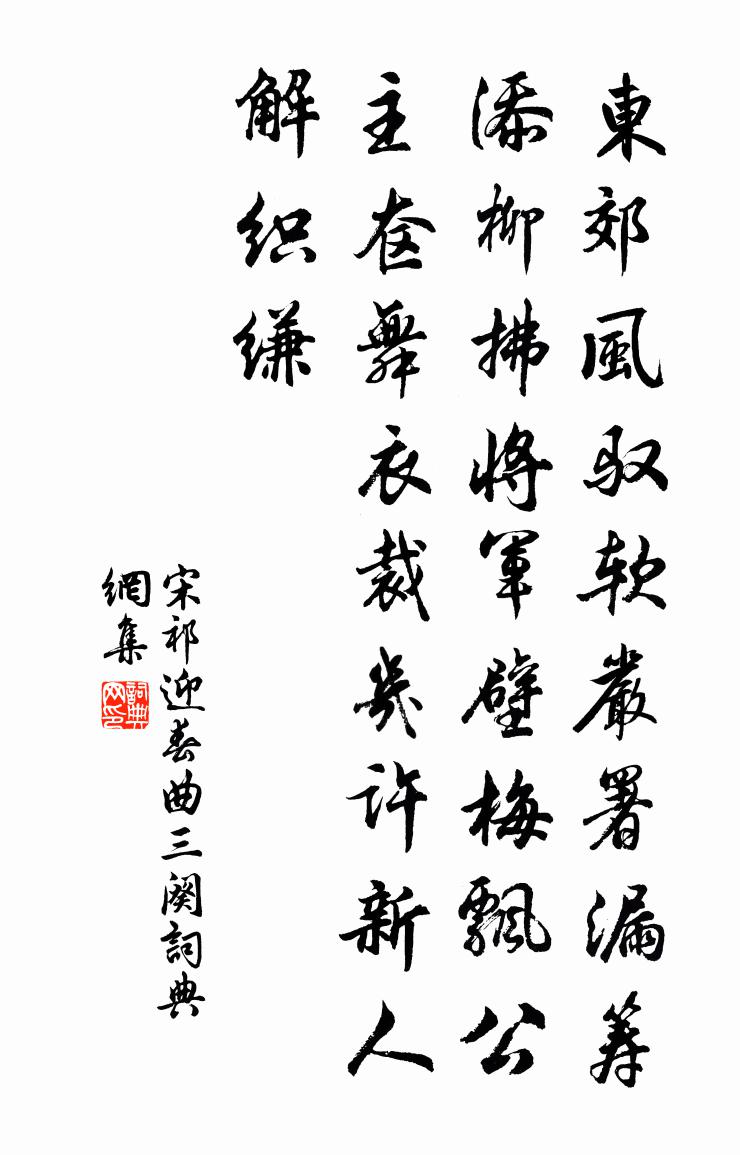 東郊風驭软嚴署漏筹
添柳拂將軍壁梅飄公
主奁舞衣裁幾许新人
解织缣
宋祁迎春曲三阕詞典
網集
詞典
网印